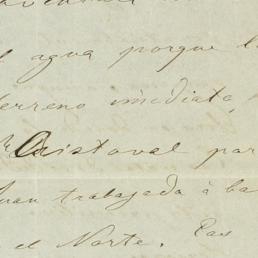 agua porque
terreno imediato,
Cristoval por
Juan trabajada á ba
el Norte. Las